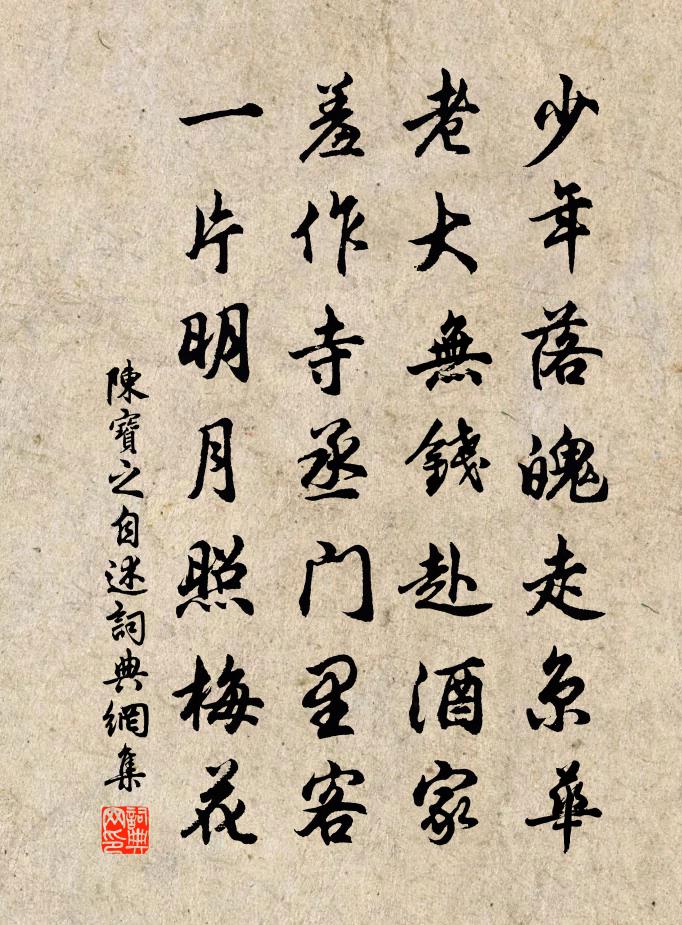 少年落魄走京華
老大無錢赴酒家
羞作寺丞門里客
一片明月照梅花
陳寶之自述詞典網集
詞典
网印